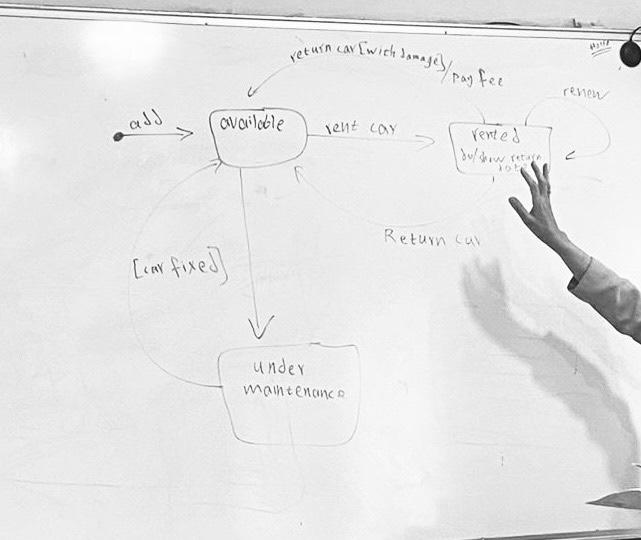 return car [with damage]
/pay fee
renew
add
available
rent car
rented
do/show return
Return car
[car fixed]
under
maintenance